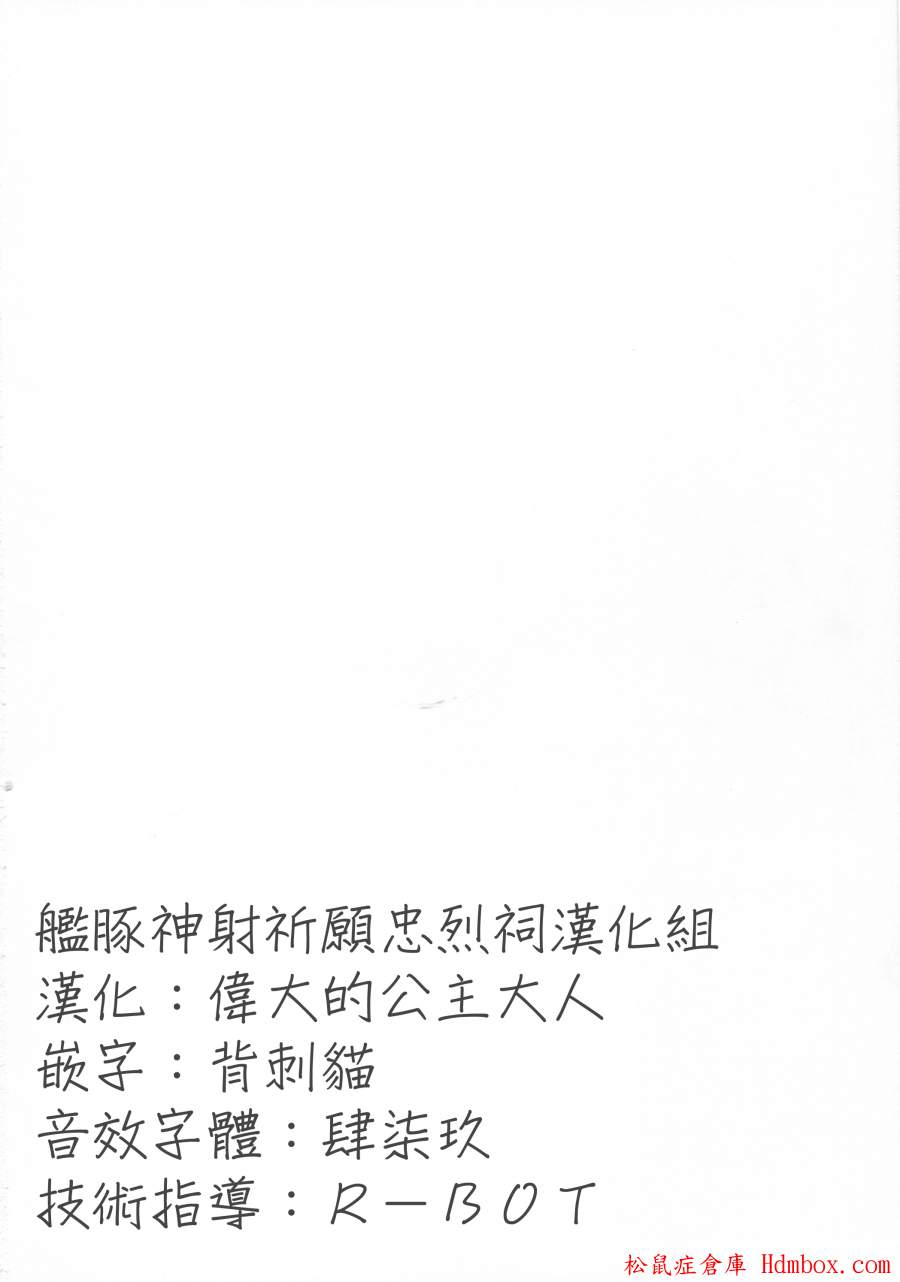 艦豚神射祈願忠烈祠漢化組
漢化：偉大的公主大人
嵌字：背刺貓
音效字體：肆柒玖
技術指導：Ｒ－ＢＯＴ
松鼠症倉庫 Hdmbox.com